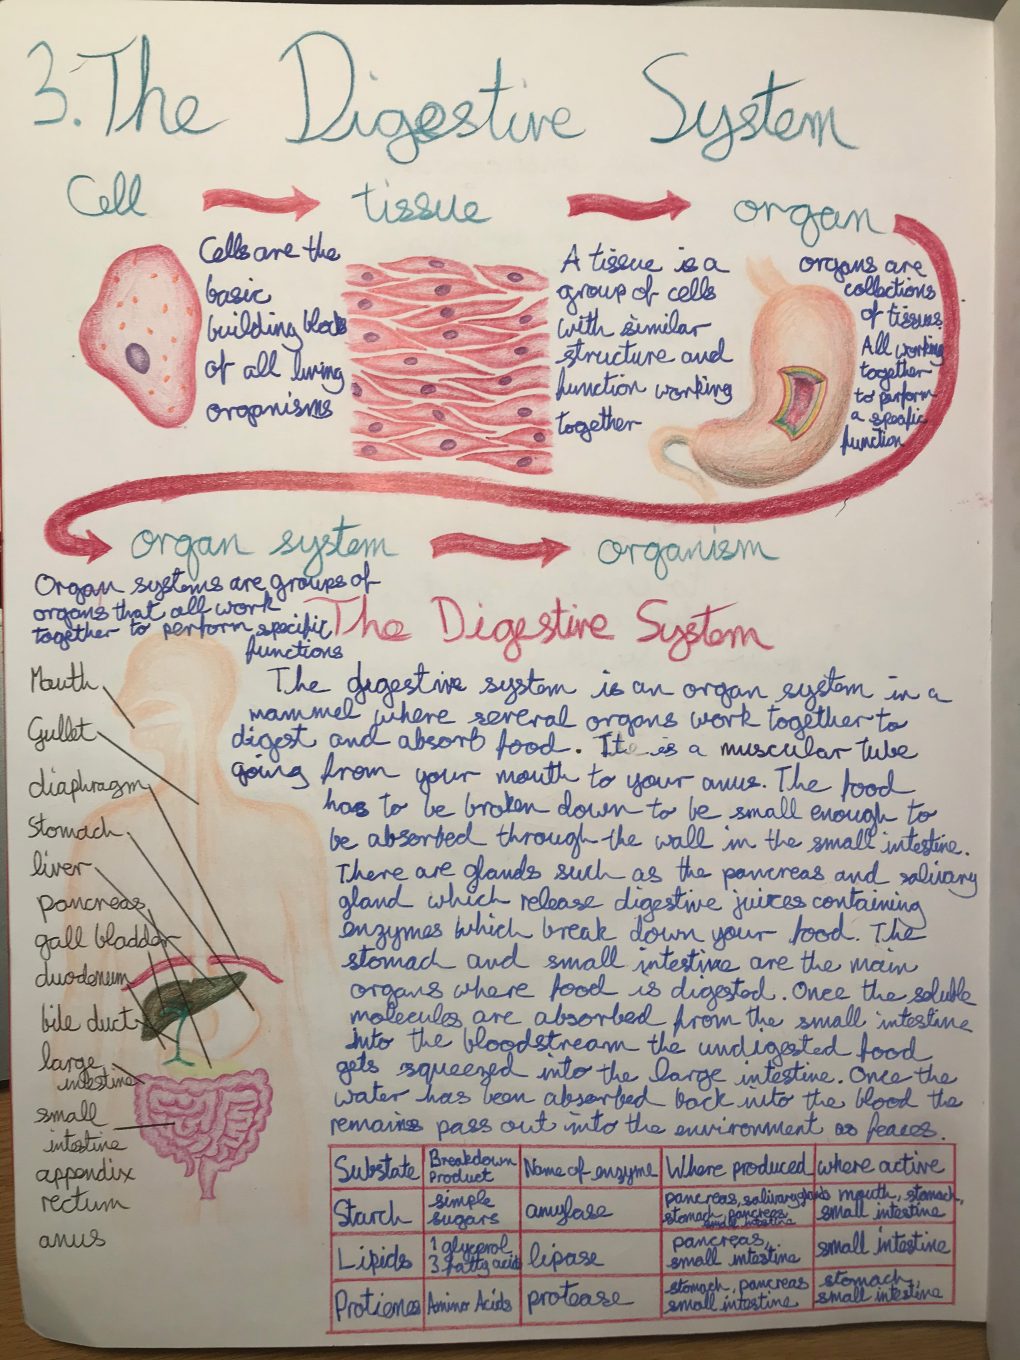 3. The Digestive System
Cell
tissue
organ
Cells are the
basic
building blocks
of all living
organisms
A tissue is a
group of cells
with similar
structure and
function working
together
organs are
collections
of tissues
All working
together
to perform
a specific
function
organ system
organism
Organ systems are groups of
organs that all work
together to perform specific
functions
The Digestive System
The digestive system is an organ system in a
mammel where several organs work together to
digest and absorb food. It is a muscular tube
going from your mouth to your anus. The food
has to be broken down to be small enough to
be absorbed through the wall in the small intestine.
There are glands such as the pancreas and salivary
gland which release digestive juices containing
enzymes which break down your food. The
stomach and small intestine are the main
organs where food is digested. Once the soluble
molecules are absorbed from the small intestine
into the bloodstream the undigested food
gets squeezed into the large intestine. Once the
water has been absorbed back into the blood the
remains pass out into the environment as feaces.
Mouth
Gullet
diaphragm
Stomach
liver
pancreas
gall bladder
duodenum
bile duct
large
intestine
small
intestine
appendix
rectum
anus
Substate
Breakdown
Product
Name of enzyme
Where produced
where active
Starch
simple
sugars
amylase
pancreas, salivary glands
stomach, pancreas,
small intestine
mouth, stomach,
small intestine
Lipids
1 glycerol
3 fatty acids
lipase
pancreas,
small intestine
small intestine
Protienes
Amino Acids
protease
stomach, pancreas
small intestine
stomach,
small intestine